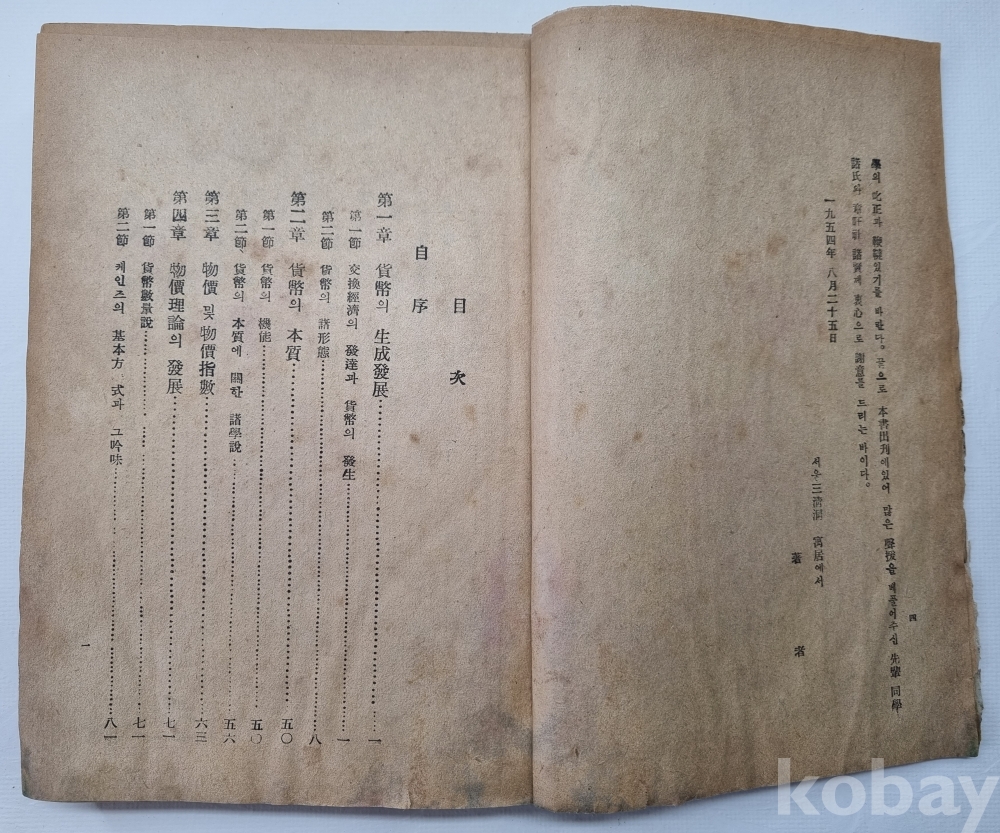 學의 叱正과 鞭撻있기를 바란다。끝으로 本書出刊에있어 많은 聲援을 베풀어주신 先輩 同學
諸氏와 諸賢께 衷心으로 謝意를 드리는 바이다。
一九五四年 八月二十五日
서울三淸洞 寓居에서
著者
四
目次
自序
第一章 貨幣의 生成發展 一
第一節 交換經濟의 發達과 貨幣의 發生 一
第二節 貨幣의 諸形態 八
第二章 貨幣의 本質 五〇
第一節 貨幣의 機能 五〇
第二節、貨幣의 本質에 關한 諸學說 五六
第三章 物價 및 物價指數 六三
第四章 物價理論의 發展 七一
第一節 貨幣數量說 七一
第二節 케인즈의 基本方 式과 그吟味 八一
一
kobay